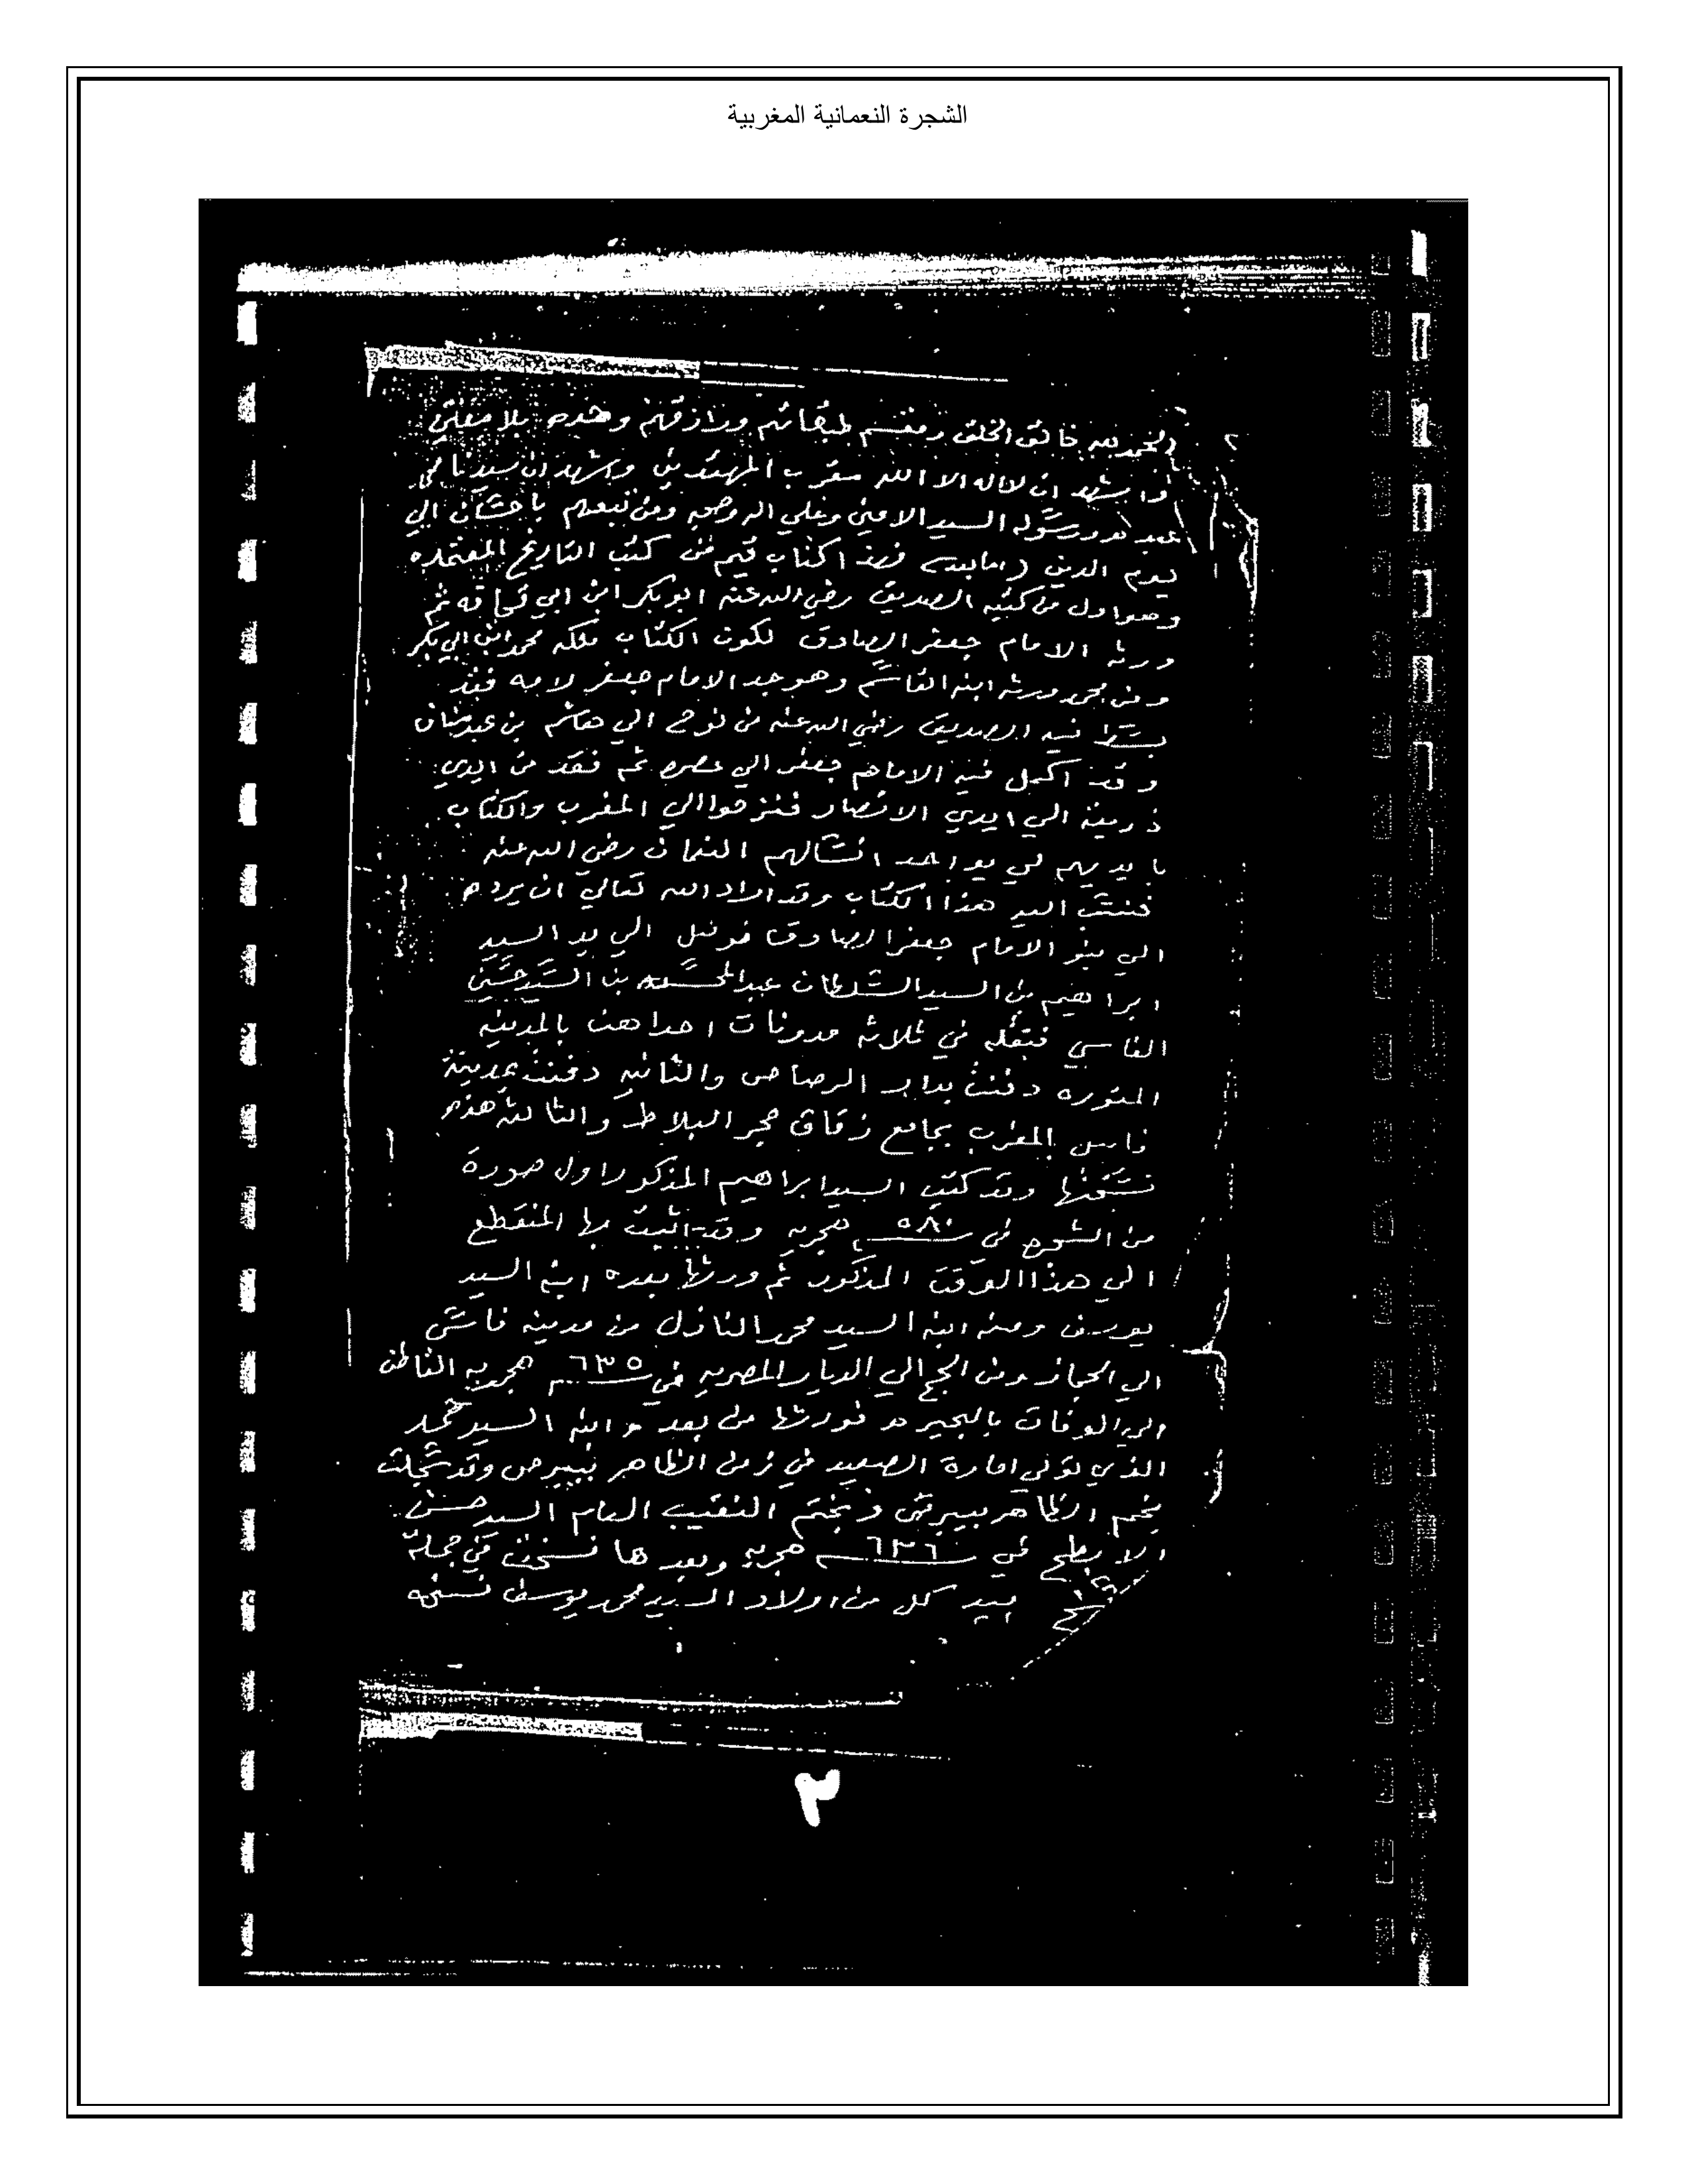 الشجرة النعمانية المغربية
٢
الحمد لله خالق الخلق ومقسم طبقاتهم ورازقهم وحده بلا
واشهد ان لا اله الا الله مقرب المهتدين واشهد ان سيدنا
عبده ورسوله السيد الامين وعلي اله وصحبه ومن تبعهم باحسان الي
يوم الدين اما بعد فهذا كتاب قيم من كتب التاريخ المعتمده
وهو اول من كتبه الصديق رضي الله عنه ابو بكر ابن ابي قحافه ثم
ورثه الامام جعفر الصادق لكون الكتاب ملكه محمد ابن ابي بكر
ومن محمد ورثه ابنه القاسم وهو جد الامام جعفر لامه فقد
بسط فيه الصديق رضي الله عنه من نوح الي هاشم بن عبد مناف
وقد اكمل فيه الامام جعفر الي عصره ثم فقد من ايدي
ذريته الي ايدي الانصار فنزحوا الي المغرب والكتاب
بايديهم في يد احد انسالهم النعمان رضي الله عنه
فنسب اليه هذا الكتاب وقد اراد الله تعالي ان يرده
الي بنو الامام جعفر الصادق فوصل الي يد السيد
ابراهيم بن السيد السلطان عبد المحسن بن السيد حسين
الفاسي فنقله في ثلاثه مدونات احداهن بالمدينه
المنوره دفنت بدار الرصاص والثانيه دفنت بمدينة
فاس المغرب بجامع زقاق حجر البلاط والثالثه هذه
نسختها وقد كتب السيد ابراهيم المذكور اول صورة
من في ٥٨٠ هجريه وقد اثبت بها المنقطع
الي هذا الوقت المذكور ثم ورثها بعده ابنه السيد
يوسف ومنه ابنه السيد محمد النازل من مدينه فاس
الي الحجاز ومن الحج الي الديار المصريه في ٦٣٥ هجريه القاطن
الي الوفات بالبحيره فورثها من بعده ابنه السيد محمد
الذي تولي امارة الصعيد في زمن الظاهر بيبرص وقد سجلت
بختم الظاهر بيبرس وبختم النقيب العام السيد حسن
الابطح في ٦٣٦ هجريه وبعدها نسخت في جملة
بيد كل من اولاد السيد محمد يوسف نسخه
٢